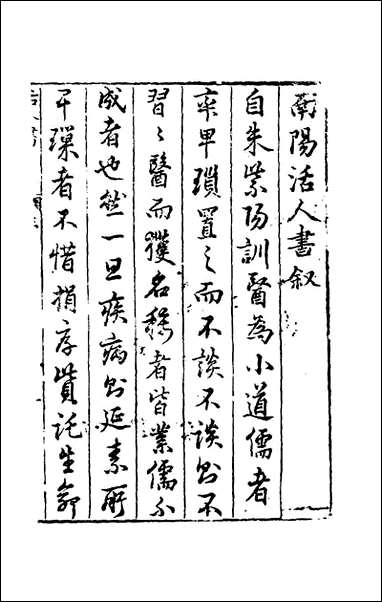 南陽活人書叙
自朱紫陽訓醫為小道儒者
率卑瑣置之而不談不談則不
習々醫而獲名穆者皆業儒不
成者也然一旦疾病則延素所
干璅者不惜捐厚貲託生命